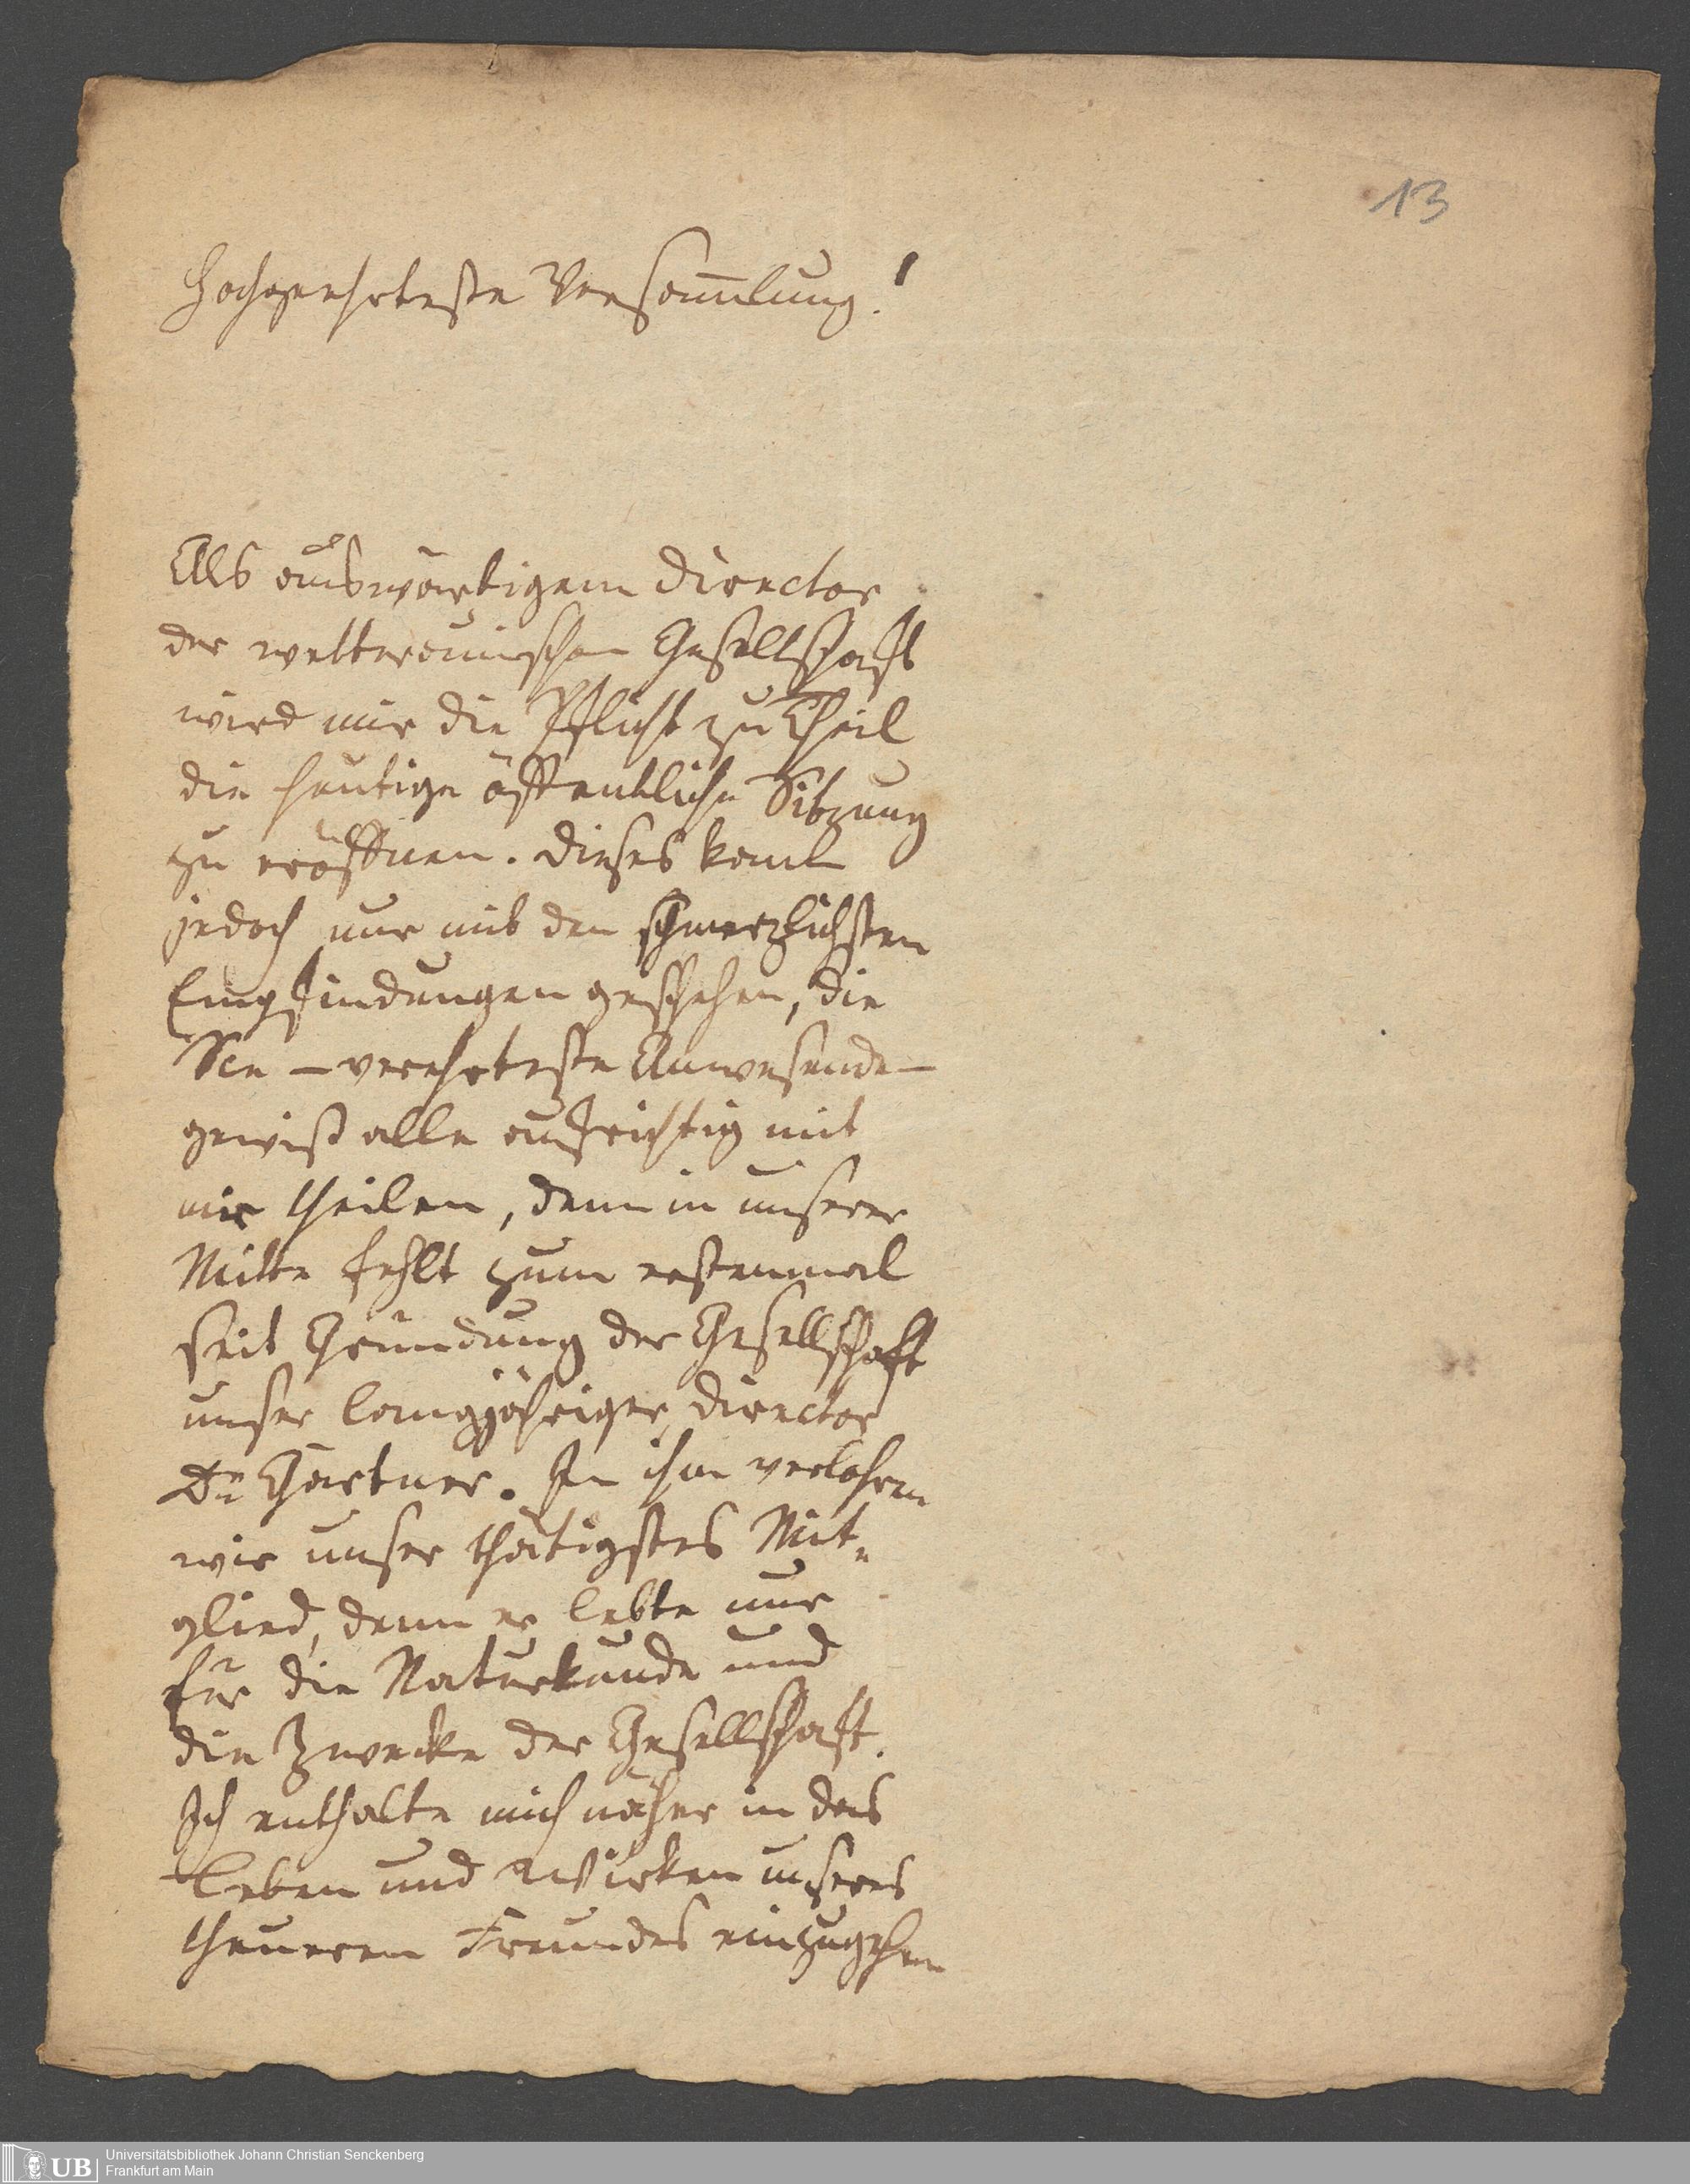 13
Hochgeehrteste Versam̄lung!
Als auswärtigem Director
der wetterauischen Gesellschaft
wird mir die Pflicht zu Theil
die heutige öffentliche Sitzung
zu eröffnen. Dieses kan̄
jedoch nur mit den schmerzlichsten
Empfindungen geschehen, die
Sie – verehrteste Anwesende –
gewiß alle aufrichtig mit
mir theilen, denn in unserer
Mitte fehlt zum erstenmal
seit Gründung der Gesellschaft
unser langjähriger Director
Dr Gärtner. In ihm verlohren
wir unser thätigstes Mit-
glied, denn er lebte nur
für die Naturkunde und
die Zwecke der Gesellschaft.
Ich enthalte mich näher in das
Leben und Wirken unseres
theueren Freundes einzugehen
UB
Universitätsbibliothek Johann Christian Senckenberg
Frankfurt am Main